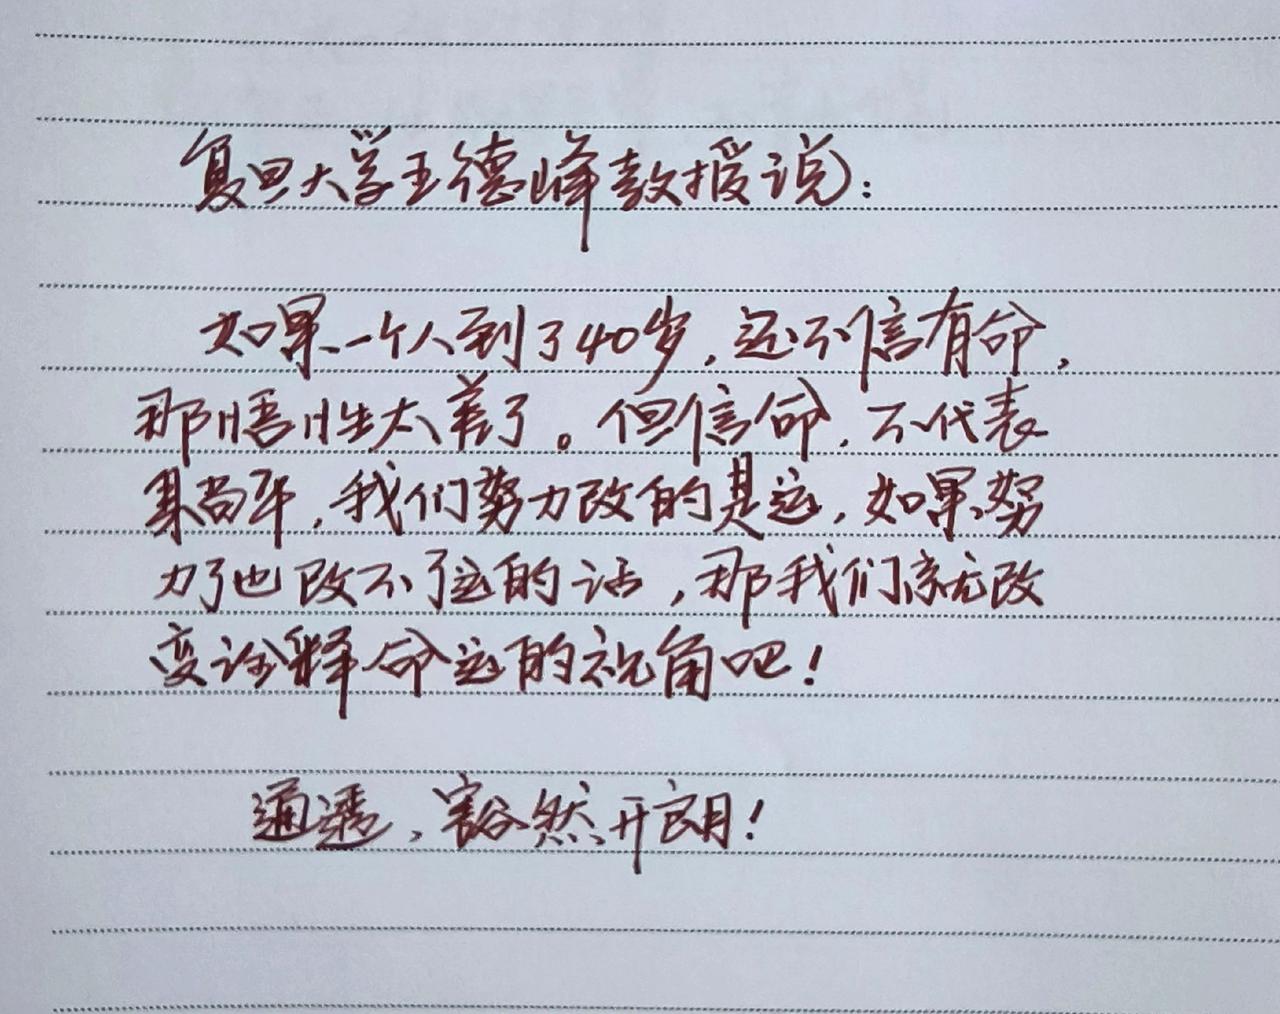 复旦大学王德峰教授说：
如果一个人到了40岁，还不信有命，
那悟性太差了。但信命，不代表
具当年，我们努力改的是运，如果努
力了也改不了运的话，那我们就改
变诠释命运的视角吧！
通透，豁然开朗！